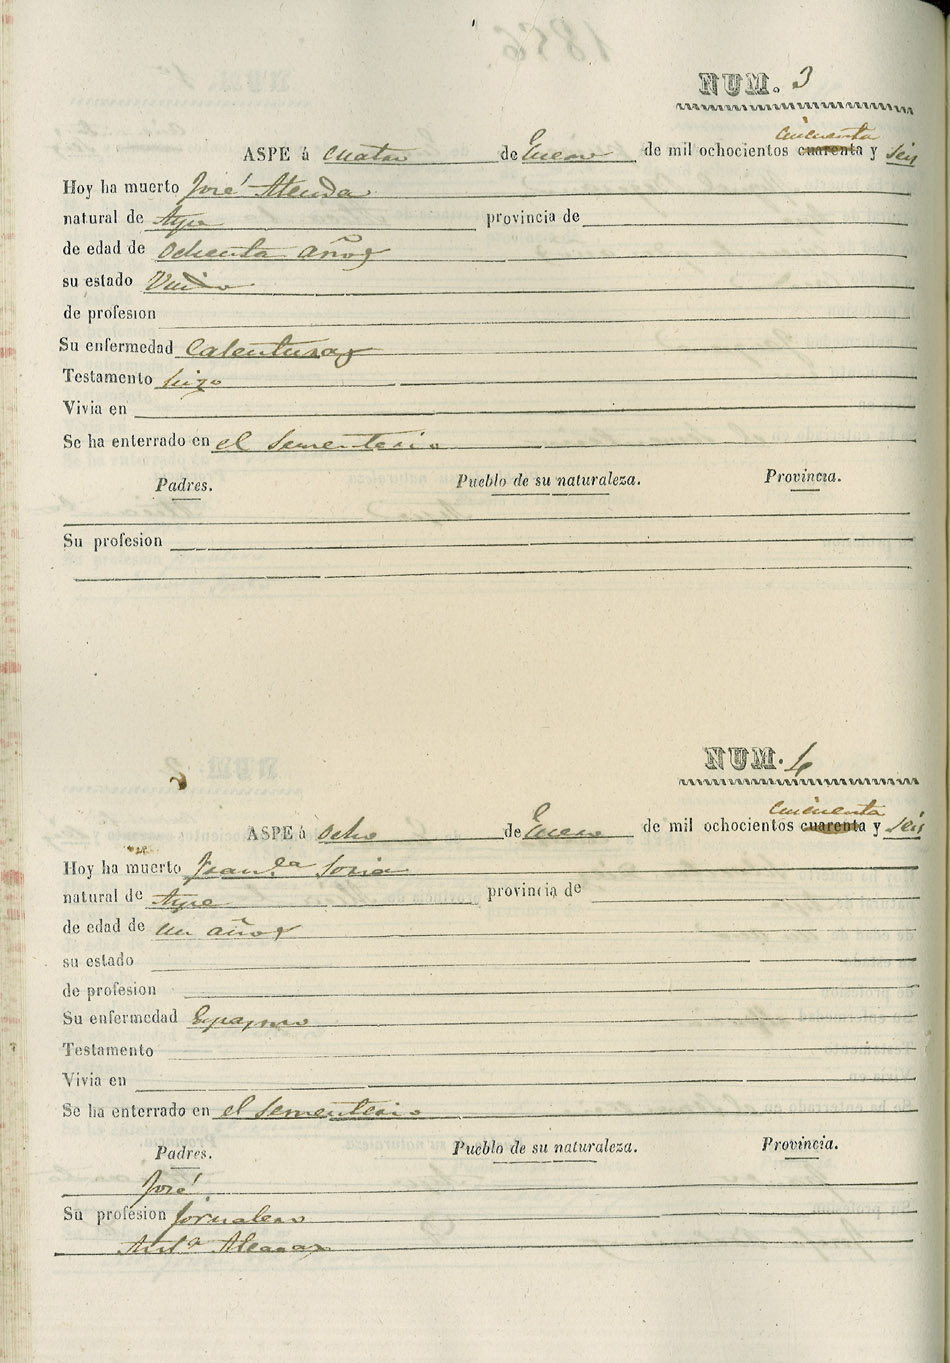 NUM. 3
cincuenta
ASPE á cuatro de Enero de mil ochocientos cuarenta y seis
Hoy ha muerto José
natural de Aspe provincia de
de edad de ochenta años
su estado Viudo
de profesion
Su enfermedad Calenturas
Testamento hizo
Vivia en
Se ha enterrado en el Sementerio
Padres. Pueblo de su naturaleza. Provincia.
Su profesion
NUM. 4
cincuenta
ASPE á Ocho de Enero de mil ochocientos cuarenta y seis
Hoy ha muerto Fran.ca Soria
natural de Aspe provincia de
de edad de un años
su estado
de profesion
Su enfermedad Espasmo
Testamento
Vivia en
Se ha enterrado en el Sementerio
Padres. Pueblo de su naturaleza. Provincia.
José
Su profesion Jornalero